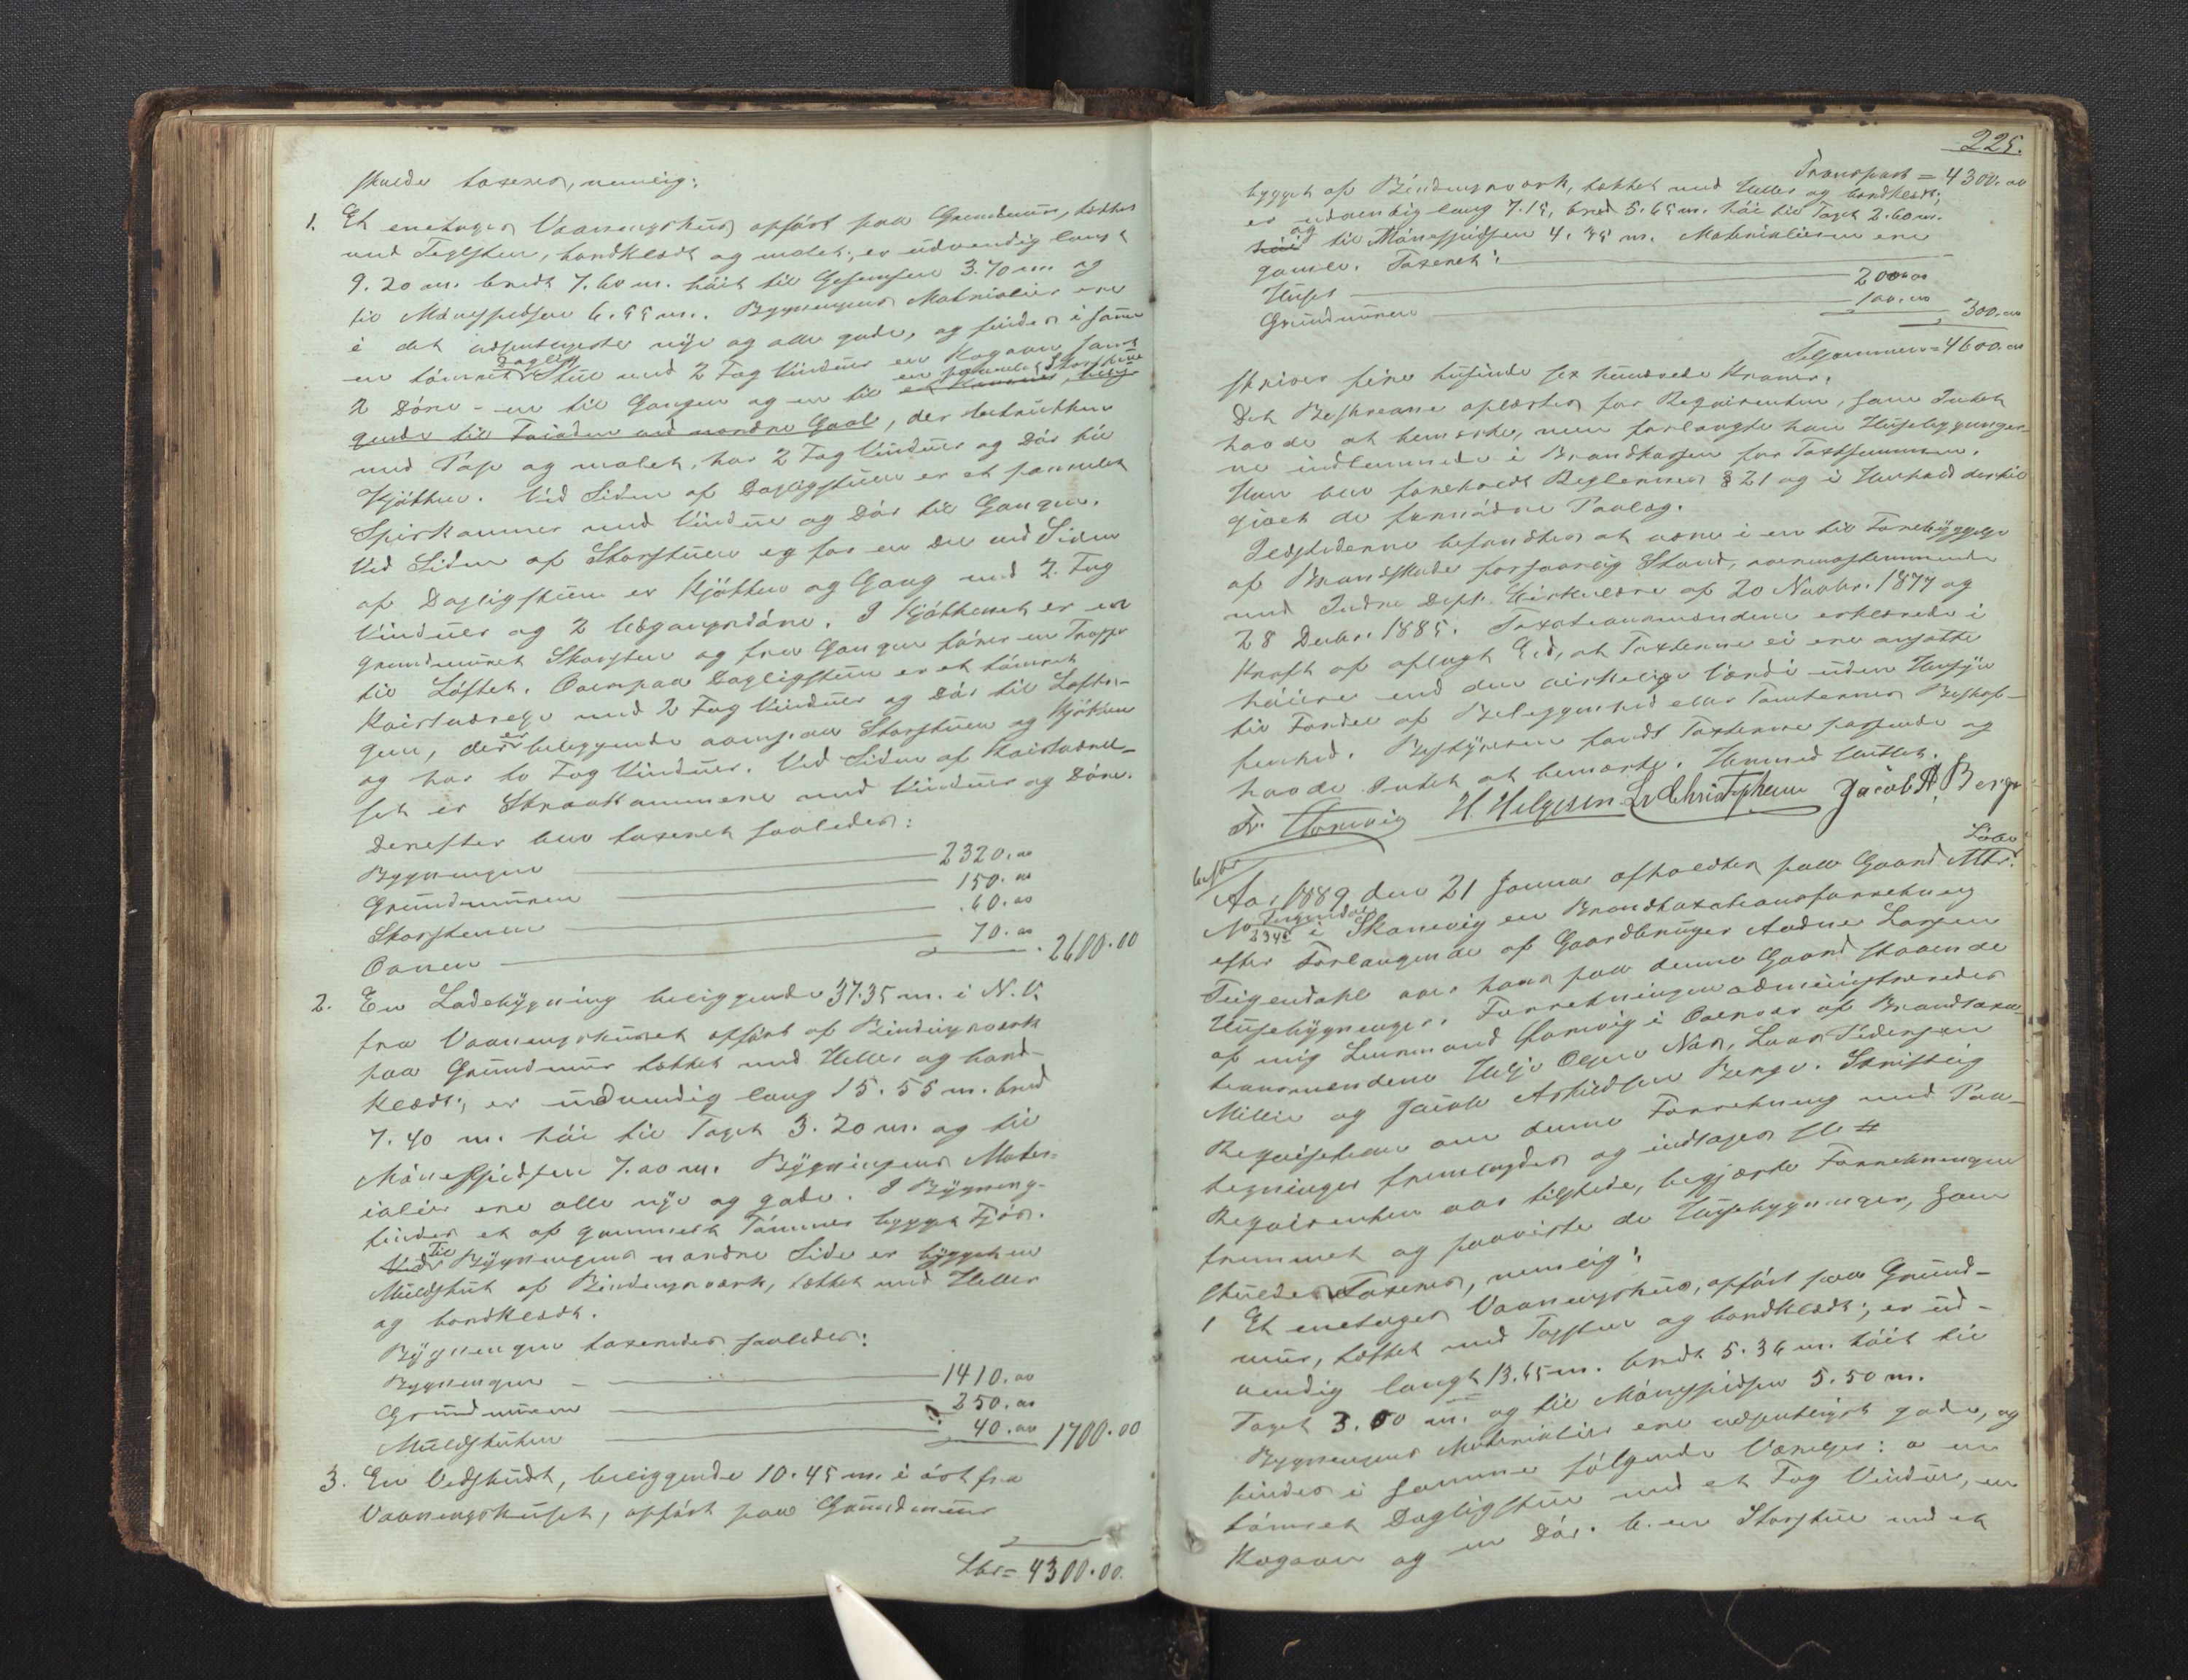 skulde taxeres, nemlig:
1. Et enetages Vaaningshus opført paa Grundmur, tækket
med Tegsten, bordklædt og malet; er udvendig langt
9.20 m. bredt 7.60 m. høit til Gesimsen 3.70 m. og
til Mønespidsen 6.55 m. Bygningens Materialier ere
i det væsentligste nye og alle gode, og findes i samme
en tømret daglig Stue med 2 Fag Vinduer en Kogeovn samt
2 Døre - en til Gangen og en til en panelet Storstue
et Kammer, belig-
gende til Facaden ved nordre Gavl, der betrukken
med Pap og malet, har 2 Fag Vinduer og Dør til
Kjøkken. Ved Siden af Dagligstuen er et panelet
Spiskammer med Vindue og Dør til Gangen.
Ved Siden af Storstuen og for en Del ved Siden
af Dagligstuen er Kjøkken og Gang med 2 Fag
Vinduer og 2 Udgangsdøre. I Kjøkkenet er en
grundmuret Skorsten og fra Gangen fører en Trappe
til Loftet. Ovenpaa Dagligstuen er et tømret
Kvistværelse med 2 Fag Vinduer og Dør til Lofts-
gen, der er beliggende ovenpaa Storstuen og Kjøkken
og har to Fag Vinduer. Ved Siden af Kvistværel-
set er Skraakammere med Vinduer og Døre.
Derefter blev taxeret saaledes:
Bygningen 2320.00
Grundmuren 150.00
Skorstenen 60.00
Ovnen 70.00 2600.00
2. En Ladebygning beliggende 37.35 m. i N.V.
fra Vaaningshuset opført af Bindingsværk
paa Grundmur tækket med Heller og bord-
klædt; er udvendig lang 15.55 m. bred
7.40 m. høi til Taget 3.20 m. og til
Mønespidsen 7.00 m. Bygningens Mater-
ialier ere alle nye og gode. I Bygning-
findes et af gammelt Tømmer bygget Fjøs.
Ved Til Bygningens nordre Side er bygget en
Muldskut af Bindingsværk, tækket med Heller
og bordklædt.
Bygningen taxeredes saaledes:
Bygningen 1410.00
Grundmuren 250.00
Muldskuten 40.00 1700.00
3. En Vedskudt, beliggende 10.45 m. i øst fra
Vaaningshuset, opført paa Grundmur
Lbr = 4300.00.
225.
Transport = 4300.00
bygget af Bindingsværk, tækket med Heller og bordklædt;
er udvendig lang 7.15, bred 5.65 m. høi til Taget 2.60 m.
høi og til Mønespidsen 4.35 m. Materialierne ere
gamle. Taxeret:
Huset 200.00
Grundmuren 100.00 300.00
Tilsammen = 4600.00
skriver fire tusinde sex hundrede Kroner.
Det Beskrevne oplæstes for Requirenten, som Intet
havde at bemærke, men forlangte han Husebygninger-
ne indlemmede i Brandkassen for Taxtsummen.
Han blev foreholdt Reglernes § 21 og i Henhold dertil
gjort de fornødne Paalæg.
Ildstederne befandtes at være i en til Forebyggelse
af Brandskade forsvarlig Stand, overensstemmende
med Indre Dept. Cirkulære af 20 Novbr. 1877 og
28 Decbr. 1885. Taxationsmændene erklærede i
Kraft af aflagt Ed, at Taxterne ei ere ansatte
høiere end den virkelige Værdi uden Hensyn
til Fordel af Beliggenhed eller Tomternes Beskaf-
fenhed. Bestyreren fandt Taxterne passende og
havde Intet at bemærke. Hermed sluttet.
H. Helgesen L. Christophersen Jacob A. Berge
Aar 1889 den 21 Januar afholdtes paa Gaard Mtr.
No 234b Teigendal i Skonevig en Brandtaxationsforretning
efter Forlangende af Gaardbruger Aadne Larsen
Teigendahl over hans paa denne Gaard staaende
Husebygninger. Forretningen administreredes
af mig Lensmand Tornvig i Overvær af Brandtaxa-
tionsmændene Helje Olsen Næs, Lars Pedersen
Milje og Jacob Askildsen Berge. Skriftlig
Requisition om denne Forretning med Paa-
tegninger fremlagdes og indtages sl. #
Requirenten var tilstede, begjærte Forretningen
fremmet og paaviste de Husebygninger, som
skulde Taxeres, nemlig:
1 Et enetages Vaaningshus, opført paa Grund-
mur, tækket med Tagsten og bordklædt; er ud-
vendig langt 13.65 m. bredt 5.36 m. høit til
Taget 3.50 m. og til Mønespidsen 5.50 m.
Bygningens Materialier ere væsentligst gode, og
findes i samme følgende Værelser: a en
tømret Dagligstue med et Fag Vindue, en
Kogeovn og en Dør. b. en Storstue med et